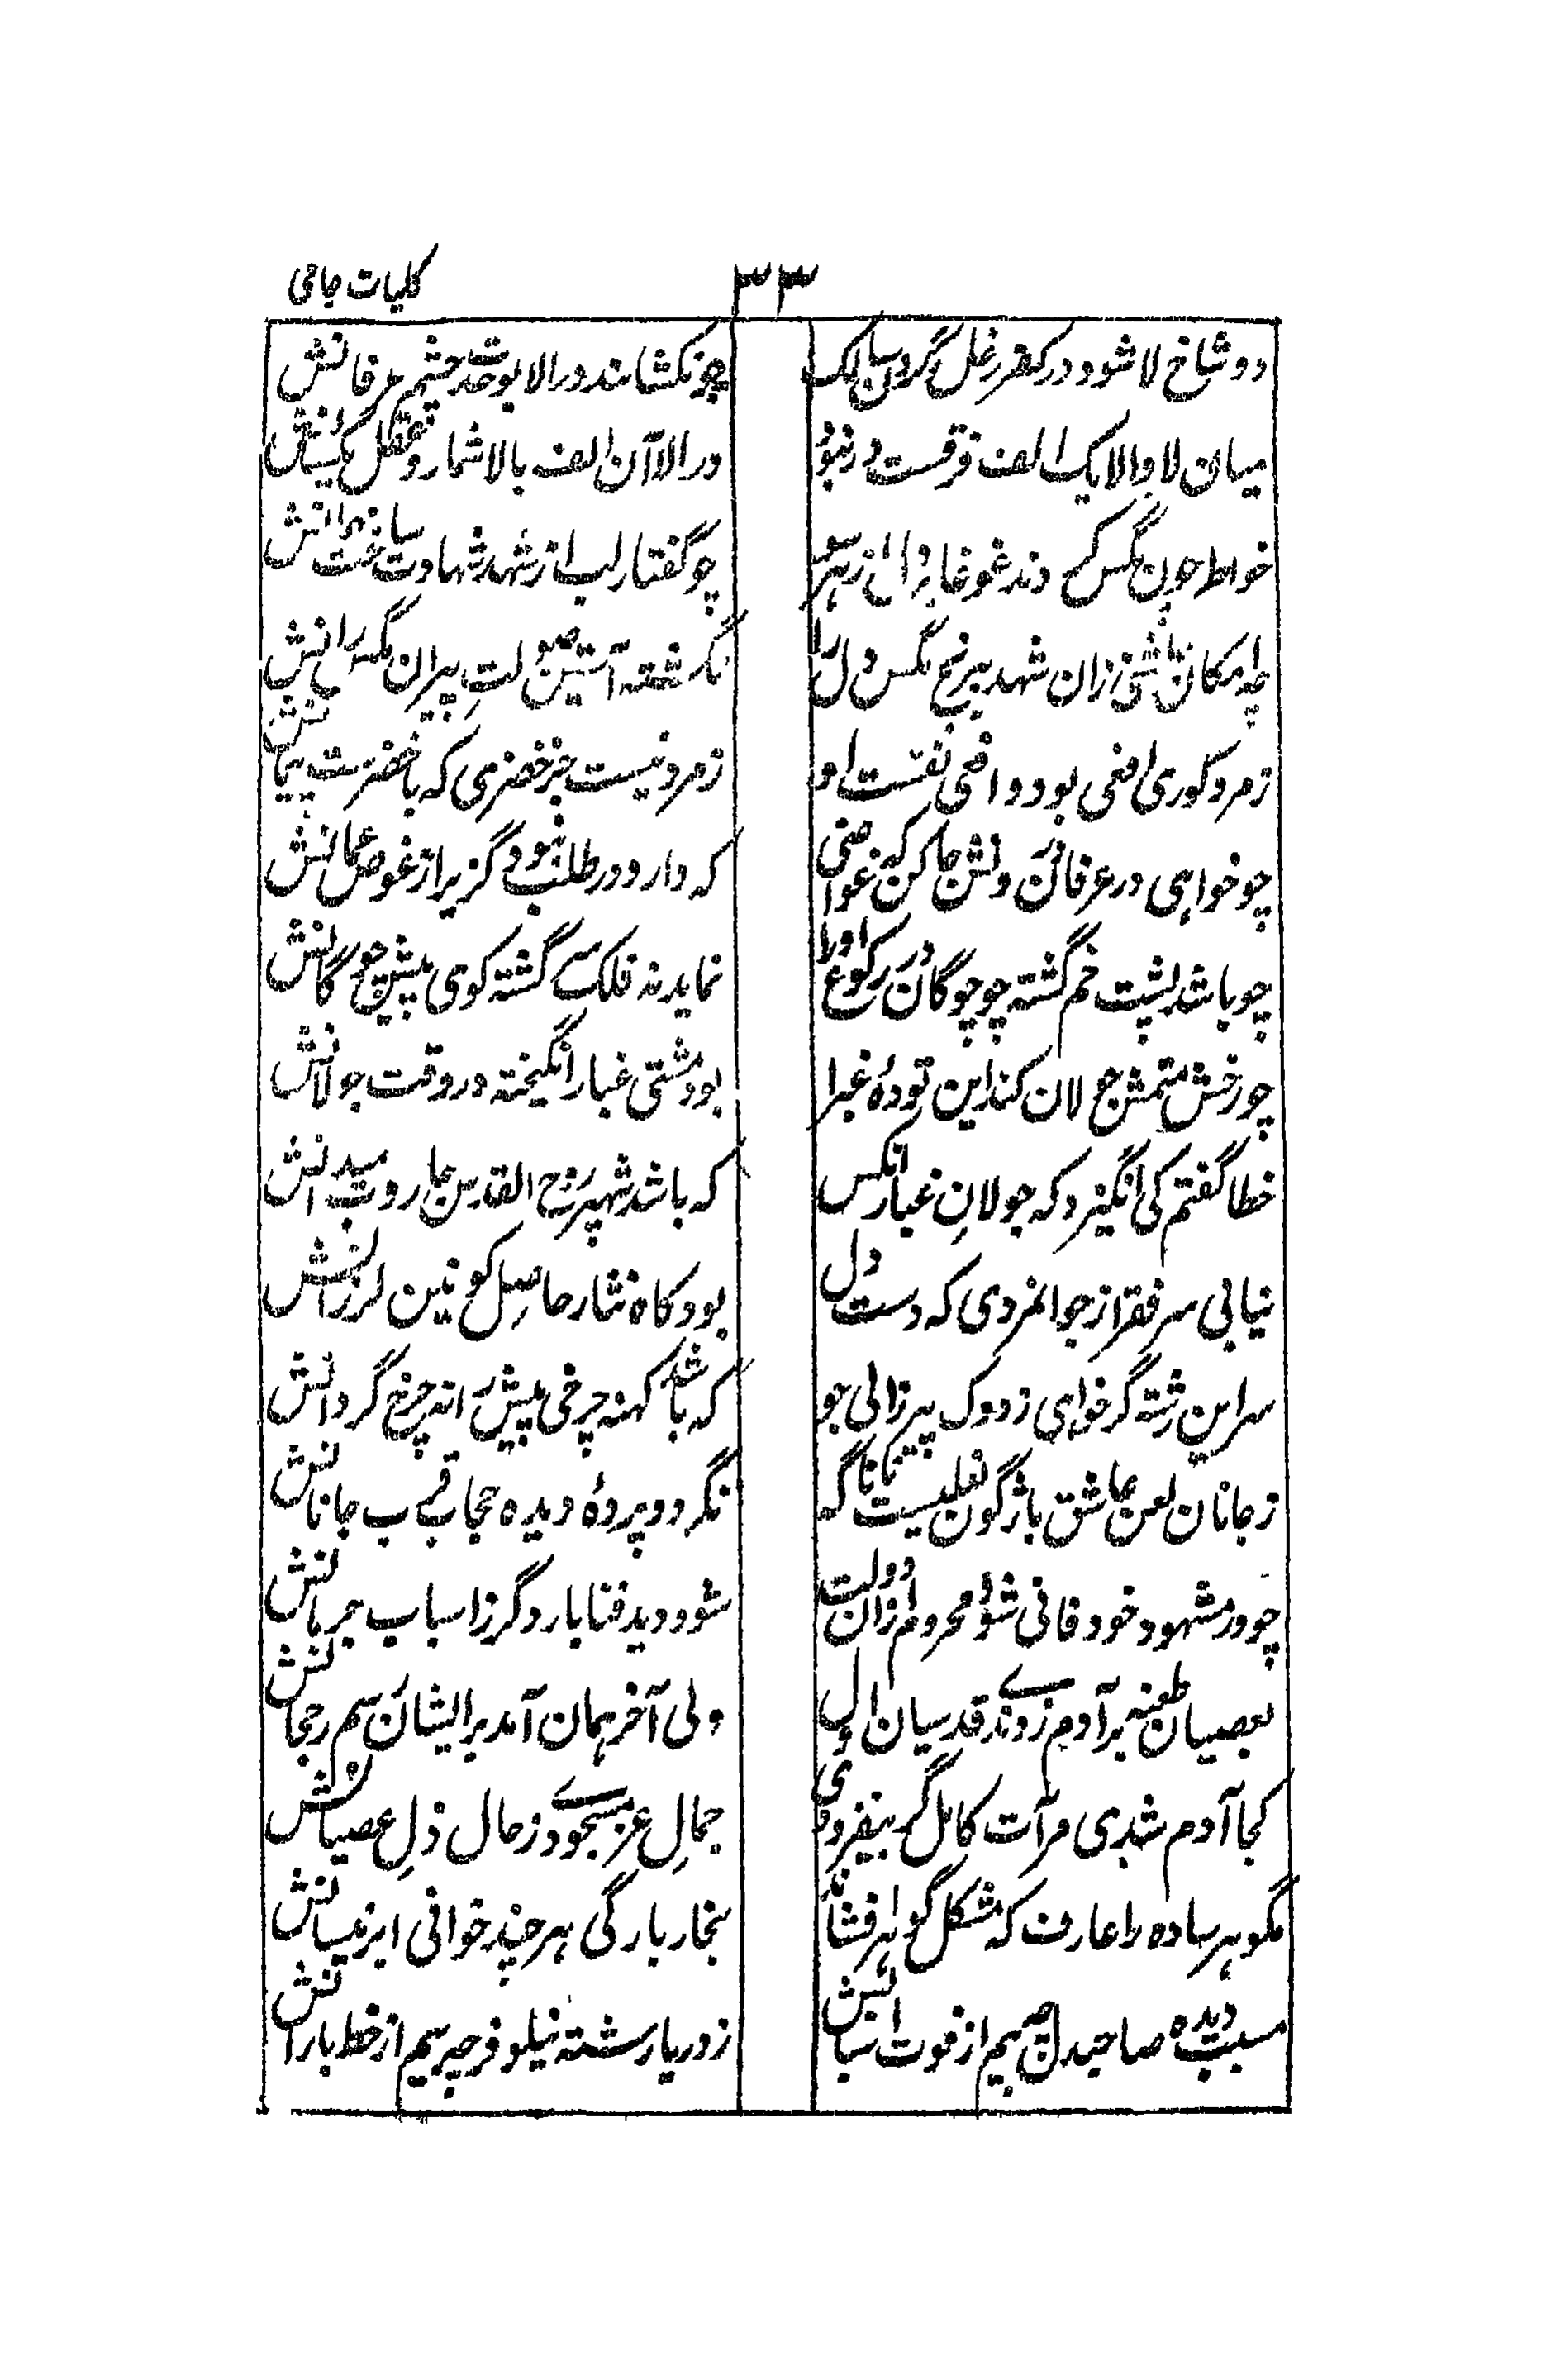 کلیات جامی
۳۳
دو شاخ لا شود در کفر غل گردن سالک
چو نکشایند در الا بوحدت چشم عرفانش
میان لا و الا یک الف فرقست و نبود
در الا آن الف بالا شمار و عقل یکسانش
خواطر چون مگس کردند غوغا بر دل از هر سو
چو گفتار لب از شهد شهادت ساخت شهدانش
چه امکان چاشنی زان شهد بیرنج مگس دل را
نگشته آستین صولت پیران مگس رانش
زمرد کوری افعی بود و افعی نفست او
زمرد نیست جز خضری که با خضرست پیمانش
چو خواهی در عرفان در دلش جا کن که غواصی
که دارد در طلب نبود گزیر از غوص عمانش
چو باشد پشت خم گشته چو چوگان در رکوع او را
نماید نه فلک سے گشته کوی پیش چوگانش
چو رخش همتش جولان کند این تودهٔ غبرا
بود مشتی غبار انگیخته در وقت جولانش
خطا گفتم کی انگیزد که جولان غبار انکس
که باشد شهپر روح القدس جاروب میدانش
نیابی سر فقر از جوانمردی که دست دل
بود کاه نثار حاصل کونین لرزانش
سر این رشته گر خواهی ز دوک پیر زالی جو
که باشد کهنه چرخی پیش راند چرخ گردانش
ز جانان لعن عاشق باژگون نعلیست تا ناگه
نگردد پردهٔ دیده حجاب قرب جانانش
چو در مشهود خود فانی شود محروم ازان دولت
شود دید فنا بار دگر ز اسباب حرمانش
بعصیان طعنه بر آدم زدندے قدسیان اول
ولی آخر همان آمد بر ایشان سم رجحانش
کجا آدم شدی مرآت کامل گر بیفزودی
جمال عز مسجودے ز حال ذل عصیانش
مگو هر ساده را عارف که مشکل گوهر افشاند
بخار بارگی هر چند خوانی ابر نیسانش
سبب دیده صاحبدل چه بیم از فوت اسبابش
ز دریا رسته نیلوفر چه بیم از خط بارانش